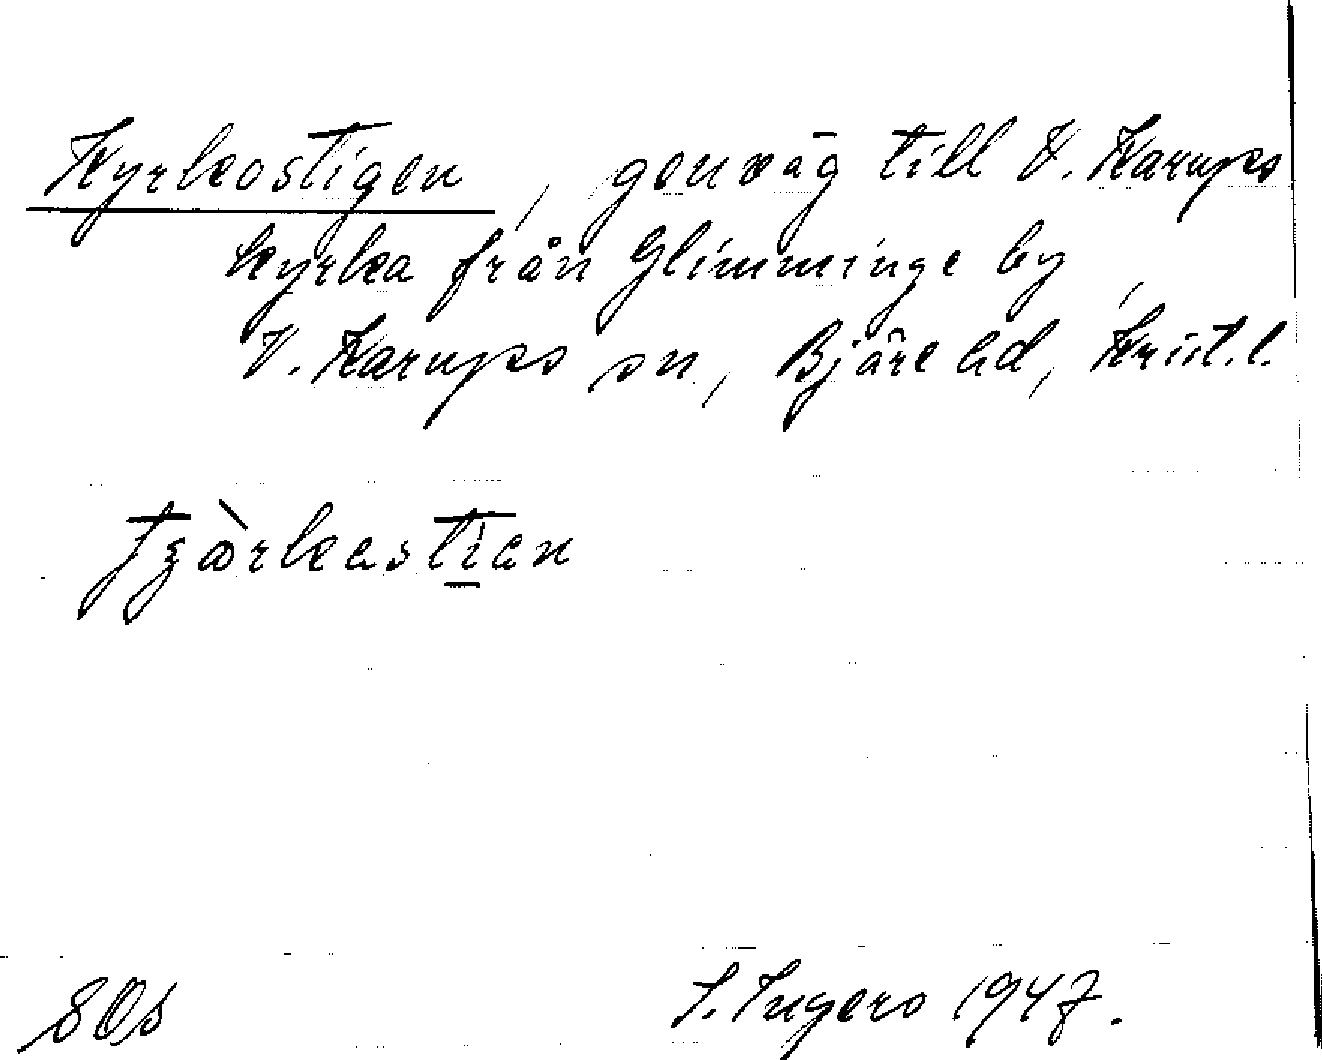 Kyrkostigen, genväg till V. Karups
kyrka från Glimminge by,
V. Karups sn, Bjäre hd, Krist. l.
S. Ingers 1947.